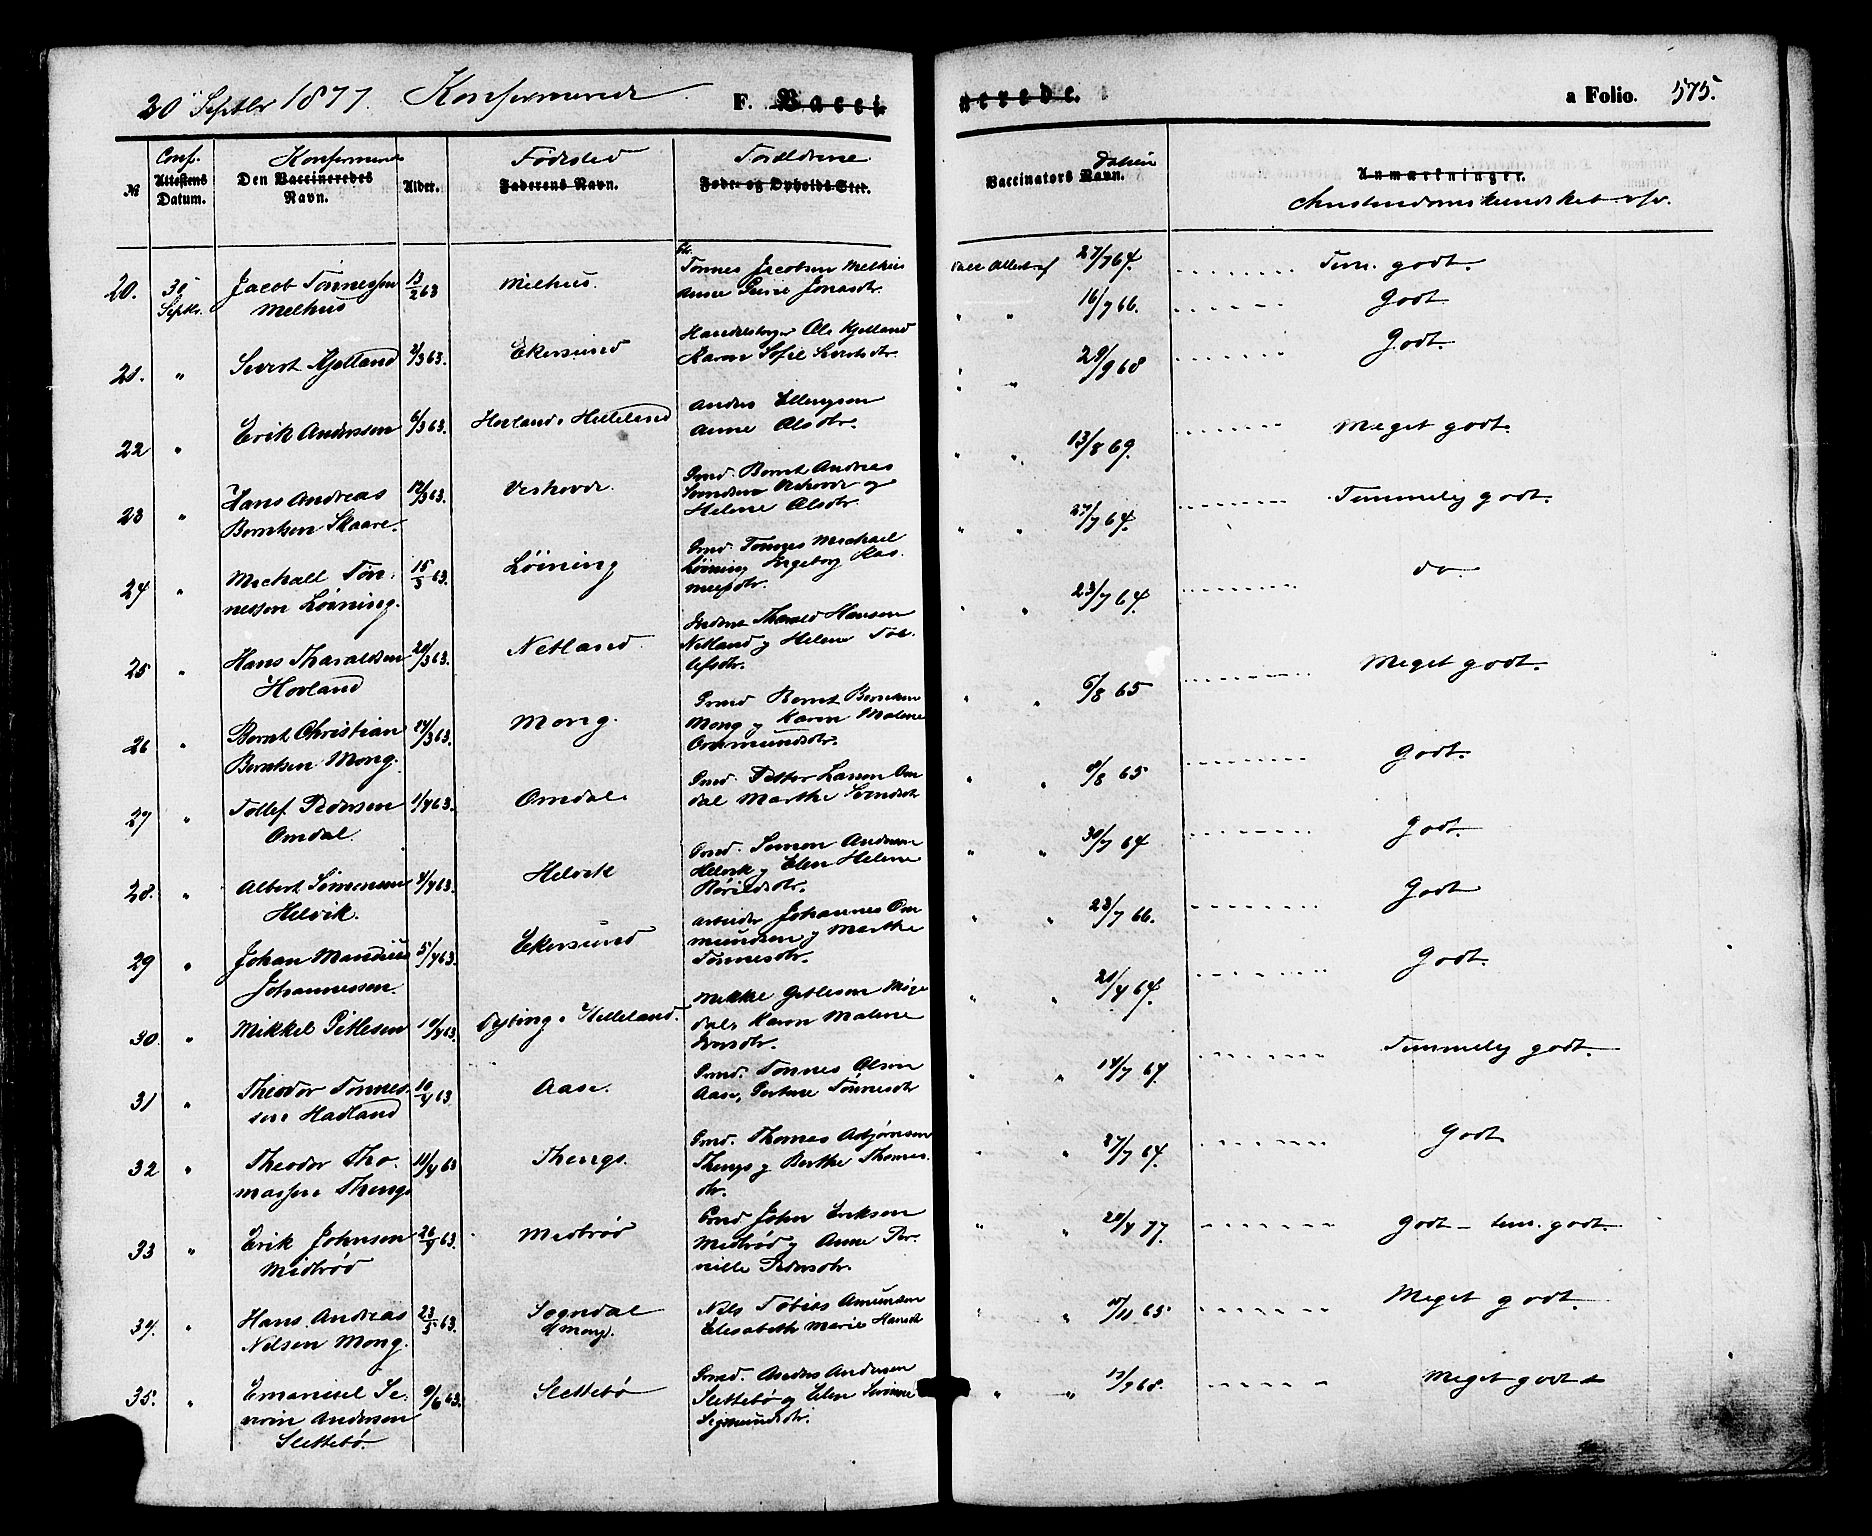 30 Septbr 1877. Konfirmerede F. Vacci nerede. a Folio. 575.
№ Conf. Attestens Datum. Konfirmere Den Vaccineredes Navn. Alder. Fødested Faderens Navn. Forældrene Føde- og Opholds-Sted. Vaccinators Navn. Datum Anmærkninger. Christendomskundskab osv.
20. 30 Septbr. Jacob Tønnessen Melhus 13/2 63 Melhus. Tønnes Jacobsen Melhus
Anne Jonasdtr. 27/7 64. Tem. godt.
16/7 66. Godt.
21. " Sivert Kjelland 2/3 63. Ekersund Handelsborger Ole Kjelland
Karen Sofie Sivertsdtr. 28/9 68 Godt.
22 " Erik Andersen 6/3 63. Hovland i Helleland Anders Ellingsen
Anne Olsdtr. 13/8 69. Meget godt.
23 " Hans Andreas
Berntsen Skaare. 12/3 63. Veshovde Gmd. Bernt Andreas
Svendsen Veshovde og
Helene Olsdtr. 27/7 64. Temmelig godt.
24 " Michall Tøn-
nessen Løining. 15/3 63. Løining Gmd. Tønnes Michael
Løining Ingeborg Ras-
musdtr. 23/7 64. do.
25 " Hans Tharaldsen
Hovland 20/3 63. Netland Tharald Hansen
Netland og Helene Tol-
lefsdtr. 6/8 65 Meget godt.
26 " Bernt Christian
Berntsen Mong. 24/3 63. Mong. Gmd Bernt Berntsen
Mong og Karen Malene
Ommundsdtr. 8/8 65 Godt.
27 " Tollef Pedersen
Omdal. 1/4 63. Omdal Gmd. Petter Larsen Om
dal Marthe Svendsdt 30/7 64 Godt.
28. " Albert Simonsen
Helvik. 4/4 63. Helvik Gmd. Simon Andersen
Helvik og Elen Helene
23/7 66. Godt
29 " Johan Mandius
Johannessen. 5/4 63. Ekersund arbeider Johannes Om
mundsen og Marthe
Tønnesdtr. 21/4 64. Godt.
30. " Mikkel Gitlesen 10/4 63. i Helleland. Mikkel Gitlesen
dal Karen Malene
Iversdtr. 14/7 64. Temmelig godt.
31 " Theodor Tønnes-
sen Hadland 10/4 63 Aase. Gmd. Tønnes Olsen
Aase, Gurine Tønnesdtr 27/7 64. Godt
32 " Theodor Tho-
massen Thengs 11/4 63 Thengs. Gmd. Thomas Asbjørnsen
Thengs og Berthe Thomas-
dtr. 28/4 77. Godt - tem. godt.
33 " Erik Johnsen
Midbrød 26/4 63. Midbrød Gmd. John Eriksen
Midbrød og Anne Per-
nille Pedersdtr. 10/11 65 Meget godt.
34. " Hans Andreas
Nilsen Mong. 23/5 63. Sogndal
(Mong). Nils Tobias Amundsen
Elisabeth Marie Hansdt 13/9 68. Meget godt
35. " Emanuel Se-
verin Andersen
Slettebø. 9/6 63. Slettebø Gmd. Anders Andersen
Slettebø og Elen Serine
Sigmundsdtr.